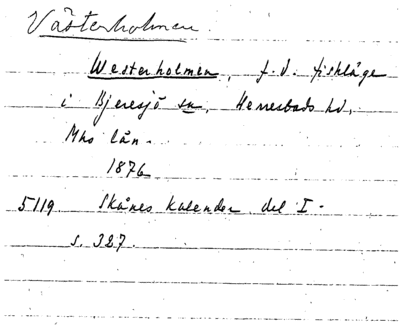 Västerholmen
Westerholmen, f.d. fiskläge
i Bjeresjö sn, Herrestads hd,
Mhs län.
1876
5119 Skånes kalender del I.
s. 327.